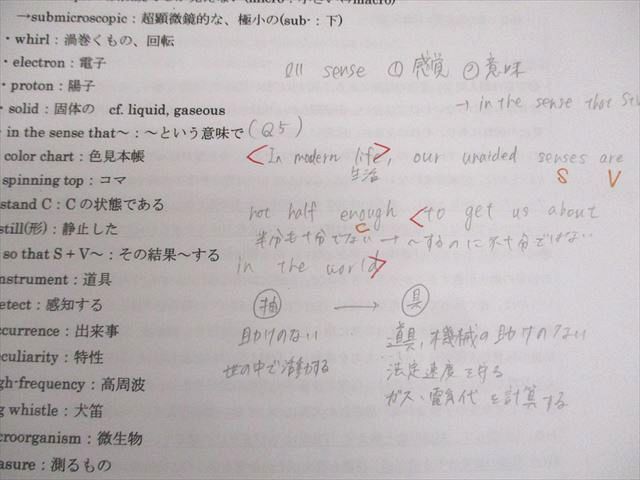 →submicroscopic：超顕微鏡的な、極小の(sub-：下)
・whirl：渦巻くもの、回転
・electron：電子
・proton：陽子
・solid：固体の cf. liquid, gaseous
in the sense that～：～という意味で (Q5)
color chart：色見本帳
spinning top：コマ
stand C：Cの状態である
still(形)：静止した
so that S + V～：その結果～する
instrument：道具
etect：感知する
ccurrence：出来事
eculiarity：特性
gh-frequency：高周波
g whistle：犬笛
croorganism：微生物
asure：測るもの
Q11 sense ① 感覚 ② 意味
→ in the sense that S+V
<In modern life>, our unaided senses are
生活
S V
not half enough <to get us about
C
半分も十分でない → ～するのに不十分ではない
in the world>
抽 → 具
助けのない 道具,機械の助けのない
世の中で活動する 法定速度を守る
ガス、電気代を計算する